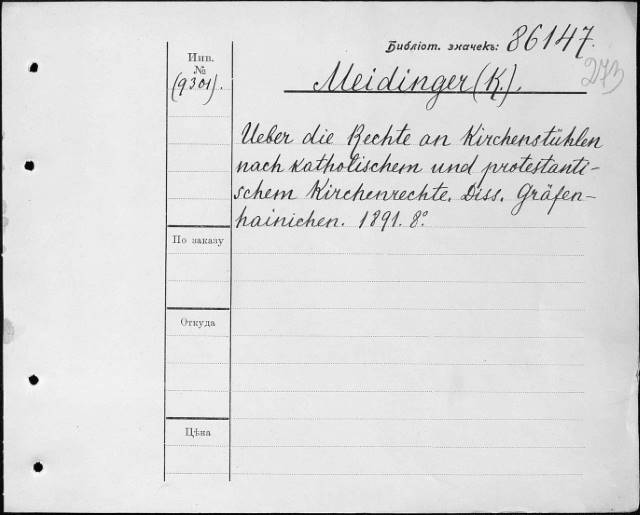 Библіот. значекъ: 86147.
273
Инв.
№
(9301).
Meidinger (K.).
Ueber die Rechte an Kirchenstühlen
nach katholischem und protestanti-
schem Kirchenrechte. Diss. Gräfen-
hainichen. 1891. 8°.
По заказу
Откуда
Цѣна